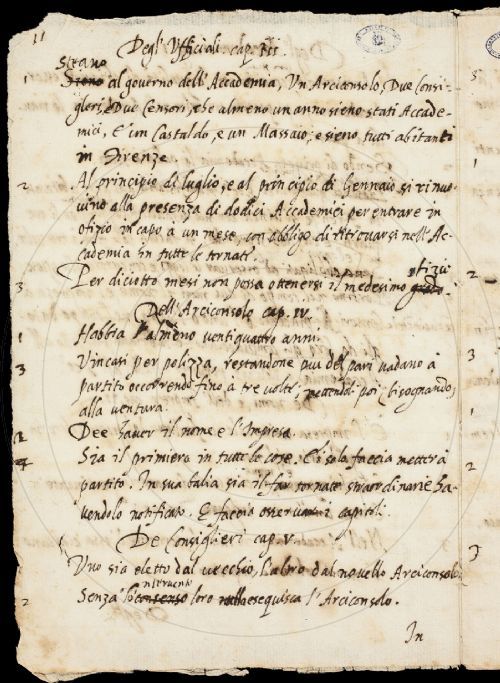 11
Degl' Ufficiali cap. III.
Sieno
1 al governo dell' Accademia, Un Arciconsolo, Due Consi-
glieri, e Due Censori, che almeno un anno sieno stati Accade-
mici, E un Castaldo, e un Massaio; e sieno tutti abitanti
in Firenze
2 Al principio di luglio, e al principio di Gennaio si rinuo-
vino alla presenza di dodici Accademici per entrare in
ofizio in capo a un mese, con obbligo di ritrovarsi nell' Ac-
cademia in tutte le tornate.
3 Per diciotto mesi non possa ottenersi il medesimo ufizio
Dell' Arciconsolo cap. IV.
1 Habbia almeno ventiquattro anni.
3 Vincasi per polizza, restandone piu del pari vadano a
partito occorrendo fino a tre volte, poi (bisognando)
alla ventura.
2 Dee haver il nome e l' Impresa.
4 Sia il primiero in tutte le cose. E si solo faccia mettere a
partito. In sua balia sia il far tornate straordinarie ha-
vendolo notificato. E faccia osservare i capitoli.
De Consiglieri cap. V.
1 Uno sia eletto dal vecchio, l'altro dal novello Arciconsolo.
intervento
2 Senza loro eseguisca l' Arciconsolo.
In